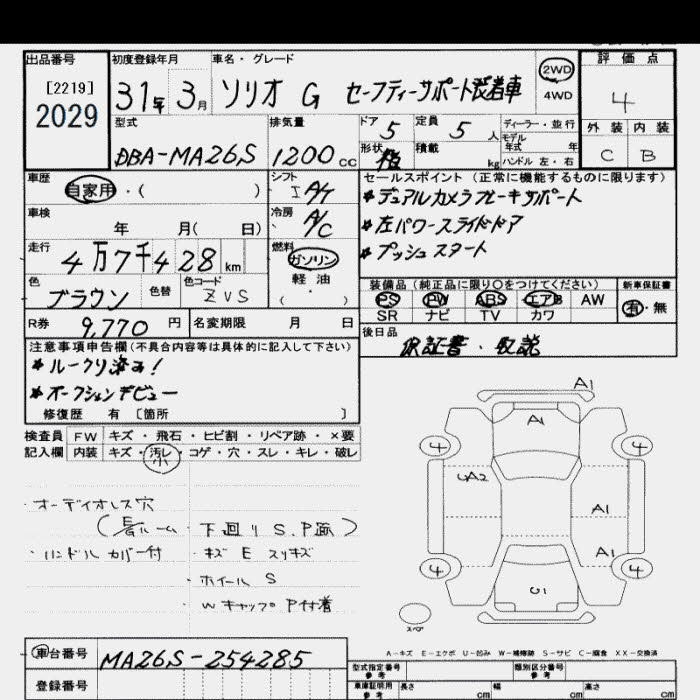 出品番号 初度登録年月 車名・グレード 評価点
[2219]
2029
31年 3月 ソリオ G セーフティーサポート装着車 2WD 4WD 4
型式 排気量 ドア 5 定員 5 人 ディーラー・並行 外装 内装
モデル年式 年
DBA-MA26S 1200cc 形状 箱 積載 kg ハンドル 左・右 C B
車歴 シフト セールスポイント (正常に機能するものに限ります)
自家用・( ) I A/T *デュアルカメラブレーキサポート
車検 冷房 *左パワースライドドア
年 月( 日) A/C *プッシュスタート
走行 燃料
4万7千428km ガソリン
軽油
装備品 (純正品に限り○をつけてください) 新車保証書
色 色替 色コード
ブラウン ZVS ( )
PS PW ABS エアB AW 有・無
SR ナビ TV カワ
R券 9,770円 名変期限 月 日 後日品
保証書・取説
注意事項申告欄(不具合内容等は具体的に記入して下さい)
*ルークリ済み!
*オークションデビュー
修復歴 有 〔箇所 〕
検査員 FW キズ・飛石・ヒビ割・リペア跡・×要
記入欄 内装 キズ・汚レ・コゲ・穴・スレ・キレ・破レ
小
・オーディオレス穴
下廻り S.P面)
・ハンドルカバー付 ・キズ E スリキズ
・ホイール S
・Wキャップ P付着
A1
A1
4 4
UA2
A1
A1
4 4
U1
スペア
A-キズ E-エクボ U-凹み W-補修跡 S-サビ C-腐食 XX-交換済
車台番号 MA26S-254285
登録番号
型式指定番号 参考 類別区分番号 参考
車庫証明用 参考 長さ cm 幅 cm 高さ cm